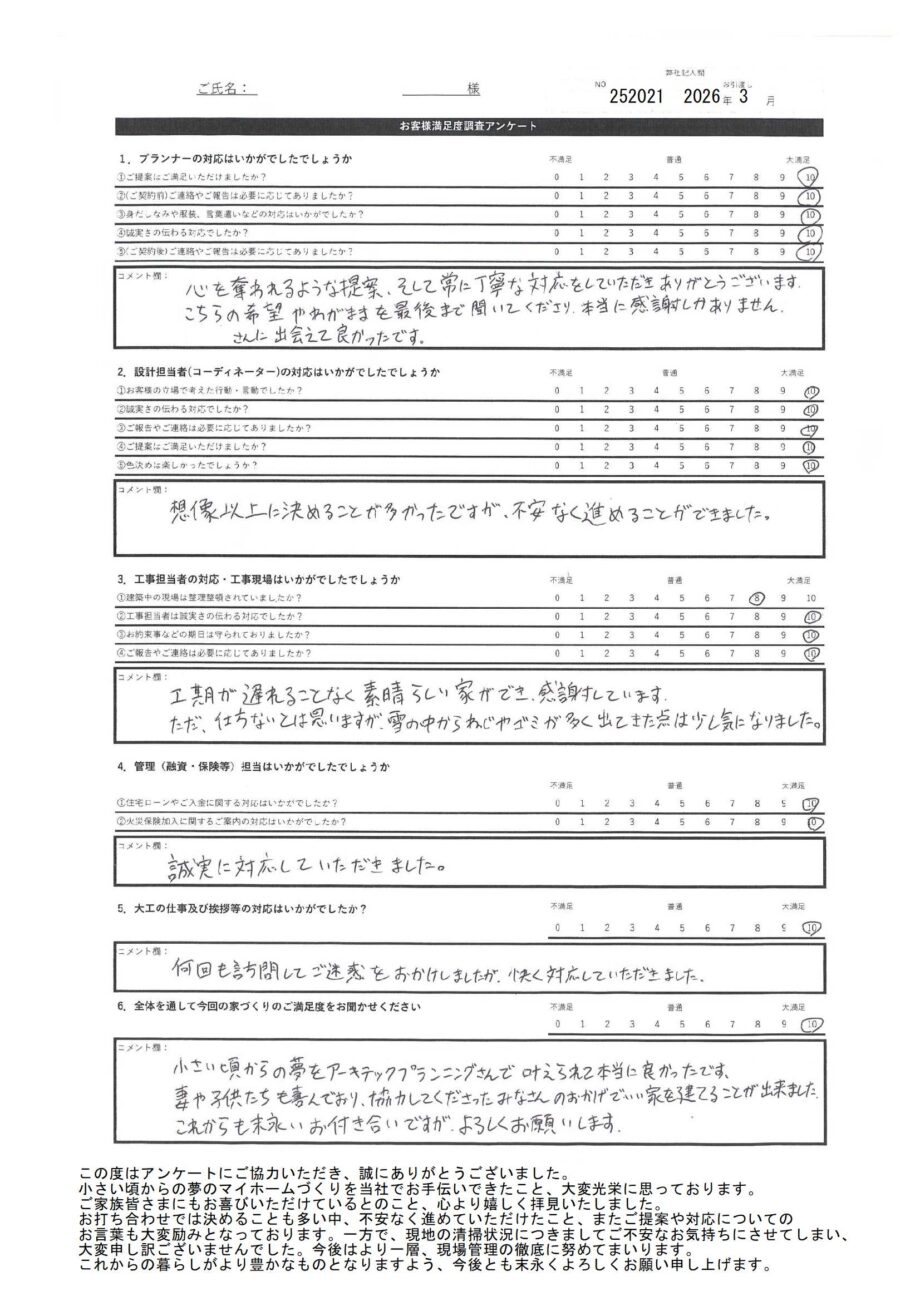 弊社記入欄
ご氏名： 様
NO 252021 2026年 お引渡し 3 月
お客様満足度調査アンケート
1．プランナーの対応はいかがでしたでしょうか 不満足 普通 大満足
①ご提案はご満足いただけましたか？ 0 1 2 3 4 5 6 7 8 9 10
②(ご契約前)ご連絡やご報告は必要に応じてありましたか？ 0 1 2 3 4 5 6 7 8 9 10
③身だしなみや服装、言葉遣いなどの対応はいかがでしたか？ 0 1 2 3 4 5 6 7 8 9 10
④誠実さの伝わる対応でしたか？ 0 1 2 3 4 5 6 7 8 9 10
⑤(ご契約後)ご連絡やご報告は必要に応じてありましたか？ 0 1 2 3 4 5 6 7 8 9 10
コメント欄：
心を奪われるような提案、そして常に丁寧な対応をしていただきありがとうございます.
こちらの希望やわがままを最後まで聞いてくださり、本当に感謝しかありません.
さんに出会えて良かったです。
2．設計担当者(コーディネーター)の対応はいかがでしたでしょうか 不満足 普通 大満足
①お客様の立場で考えた行動・言動でしたか？ 0 1 2 3 4 5 6 7 8 9 10
②誠実さの伝わる対応でしたか？ 0 1 2 3 4 5 6 7 8 9 10
③ご報告やご連絡は必要に応じてありましたか？ 0 1 2 3 4 5 6 7 8 9 10
④ご提案はご満足いただけましたか？ 0 1 2 3 4 5 6 7 8 9 10
⑤色決めは楽しかったでしょうか？ 0 1 2 3 4 5 6 7 8 9 10
コメント欄：
想像以上に決めることが多かったですが、不安なく進めることができました。
3．工事担当者の対応・工事現場はいかがでしたでしょうか 不満足 普通 大満足
①建築中の現場は整理整頓されていましたか？ 0 1 2 3 4 5 6 7 8 9 10
②工事担当者は誠実さの伝わる対応でしたか？ 0 1 2 3 4 5 6 7 8 9 10
③お約束事などの期日は守られておりましたか？ 0 1 2 3 4 5 6 7 8 9 10
④ご報告やご連絡は必要に応じてありましたか？ 0 1 2 3 4 5 6 7 8 9 10
コメント欄：
工期が遅れることなく素晴らしい家ができ、感謝しています.
ただ、仕方ないとは思いますが、雪の中からねじやゴミが多く出てきた点は少し気になりました。
4．管理（融資・保険等）担当はいかがでしたでしょうか
不満足 普通 大満足
①住宅ローンやご入金に関する対応はいかがでしたか？ 0 1 2 3 4 5 6 7 8 9 10
②火災保険加入に関するご案内の対応はいかがでしたか？ 0 1 2 3 4 5 6 7 8 9 10
コメント欄：
誠実に対応していただきました。
5．大工の仕事及び挨拶等の対応はいかがでしたか？ 不満足 普通 大満足
0 1 2 3 4 5 6 7 8 9 10
コメント欄：
何回も訪問してご迷惑をおかけしましたが、快く対応していただきました.
6．全体を通して今回の家づくりのご満足度をお聞かせください 不満足 普通 大満足
0 1 2 3 4 5 6 7 8 9 10
コメント欄：
小さい頃からの夢をアーキテックプランニングさんで叶えられて本当に良かったです、
妻や子供たちも喜んでおり、協力してくださったみなさんのおかげでいい家を建てることが出来ました.
これからも末永いお付き合いですが、よろしくお願いします.
この度はアンケートにご協力いただき、誠にありがとうございました。
小さい頃からの夢のマイホームづくりを当社でお手伝いできたこと、大変光栄に思っております。
ご家族皆さまにもお喜びいただけているとのこと、心より嬉しく拝見いたしました。
お打ち合わせでは決めることも多い中、不安なく進めていただけたこと、またご提案や対応についての
お言葉も大変励みとなっております。一方で、現地の清掃状況につきましてご不安なお気持ちにさせてしまい、
大変申し訳ございませんでした。今後はより一層、現場管理の徹底に努めてまいります。
これからの暮らしがより豊かなものとなりますよう、今後とも末永くよろしくお願い申し上げます。